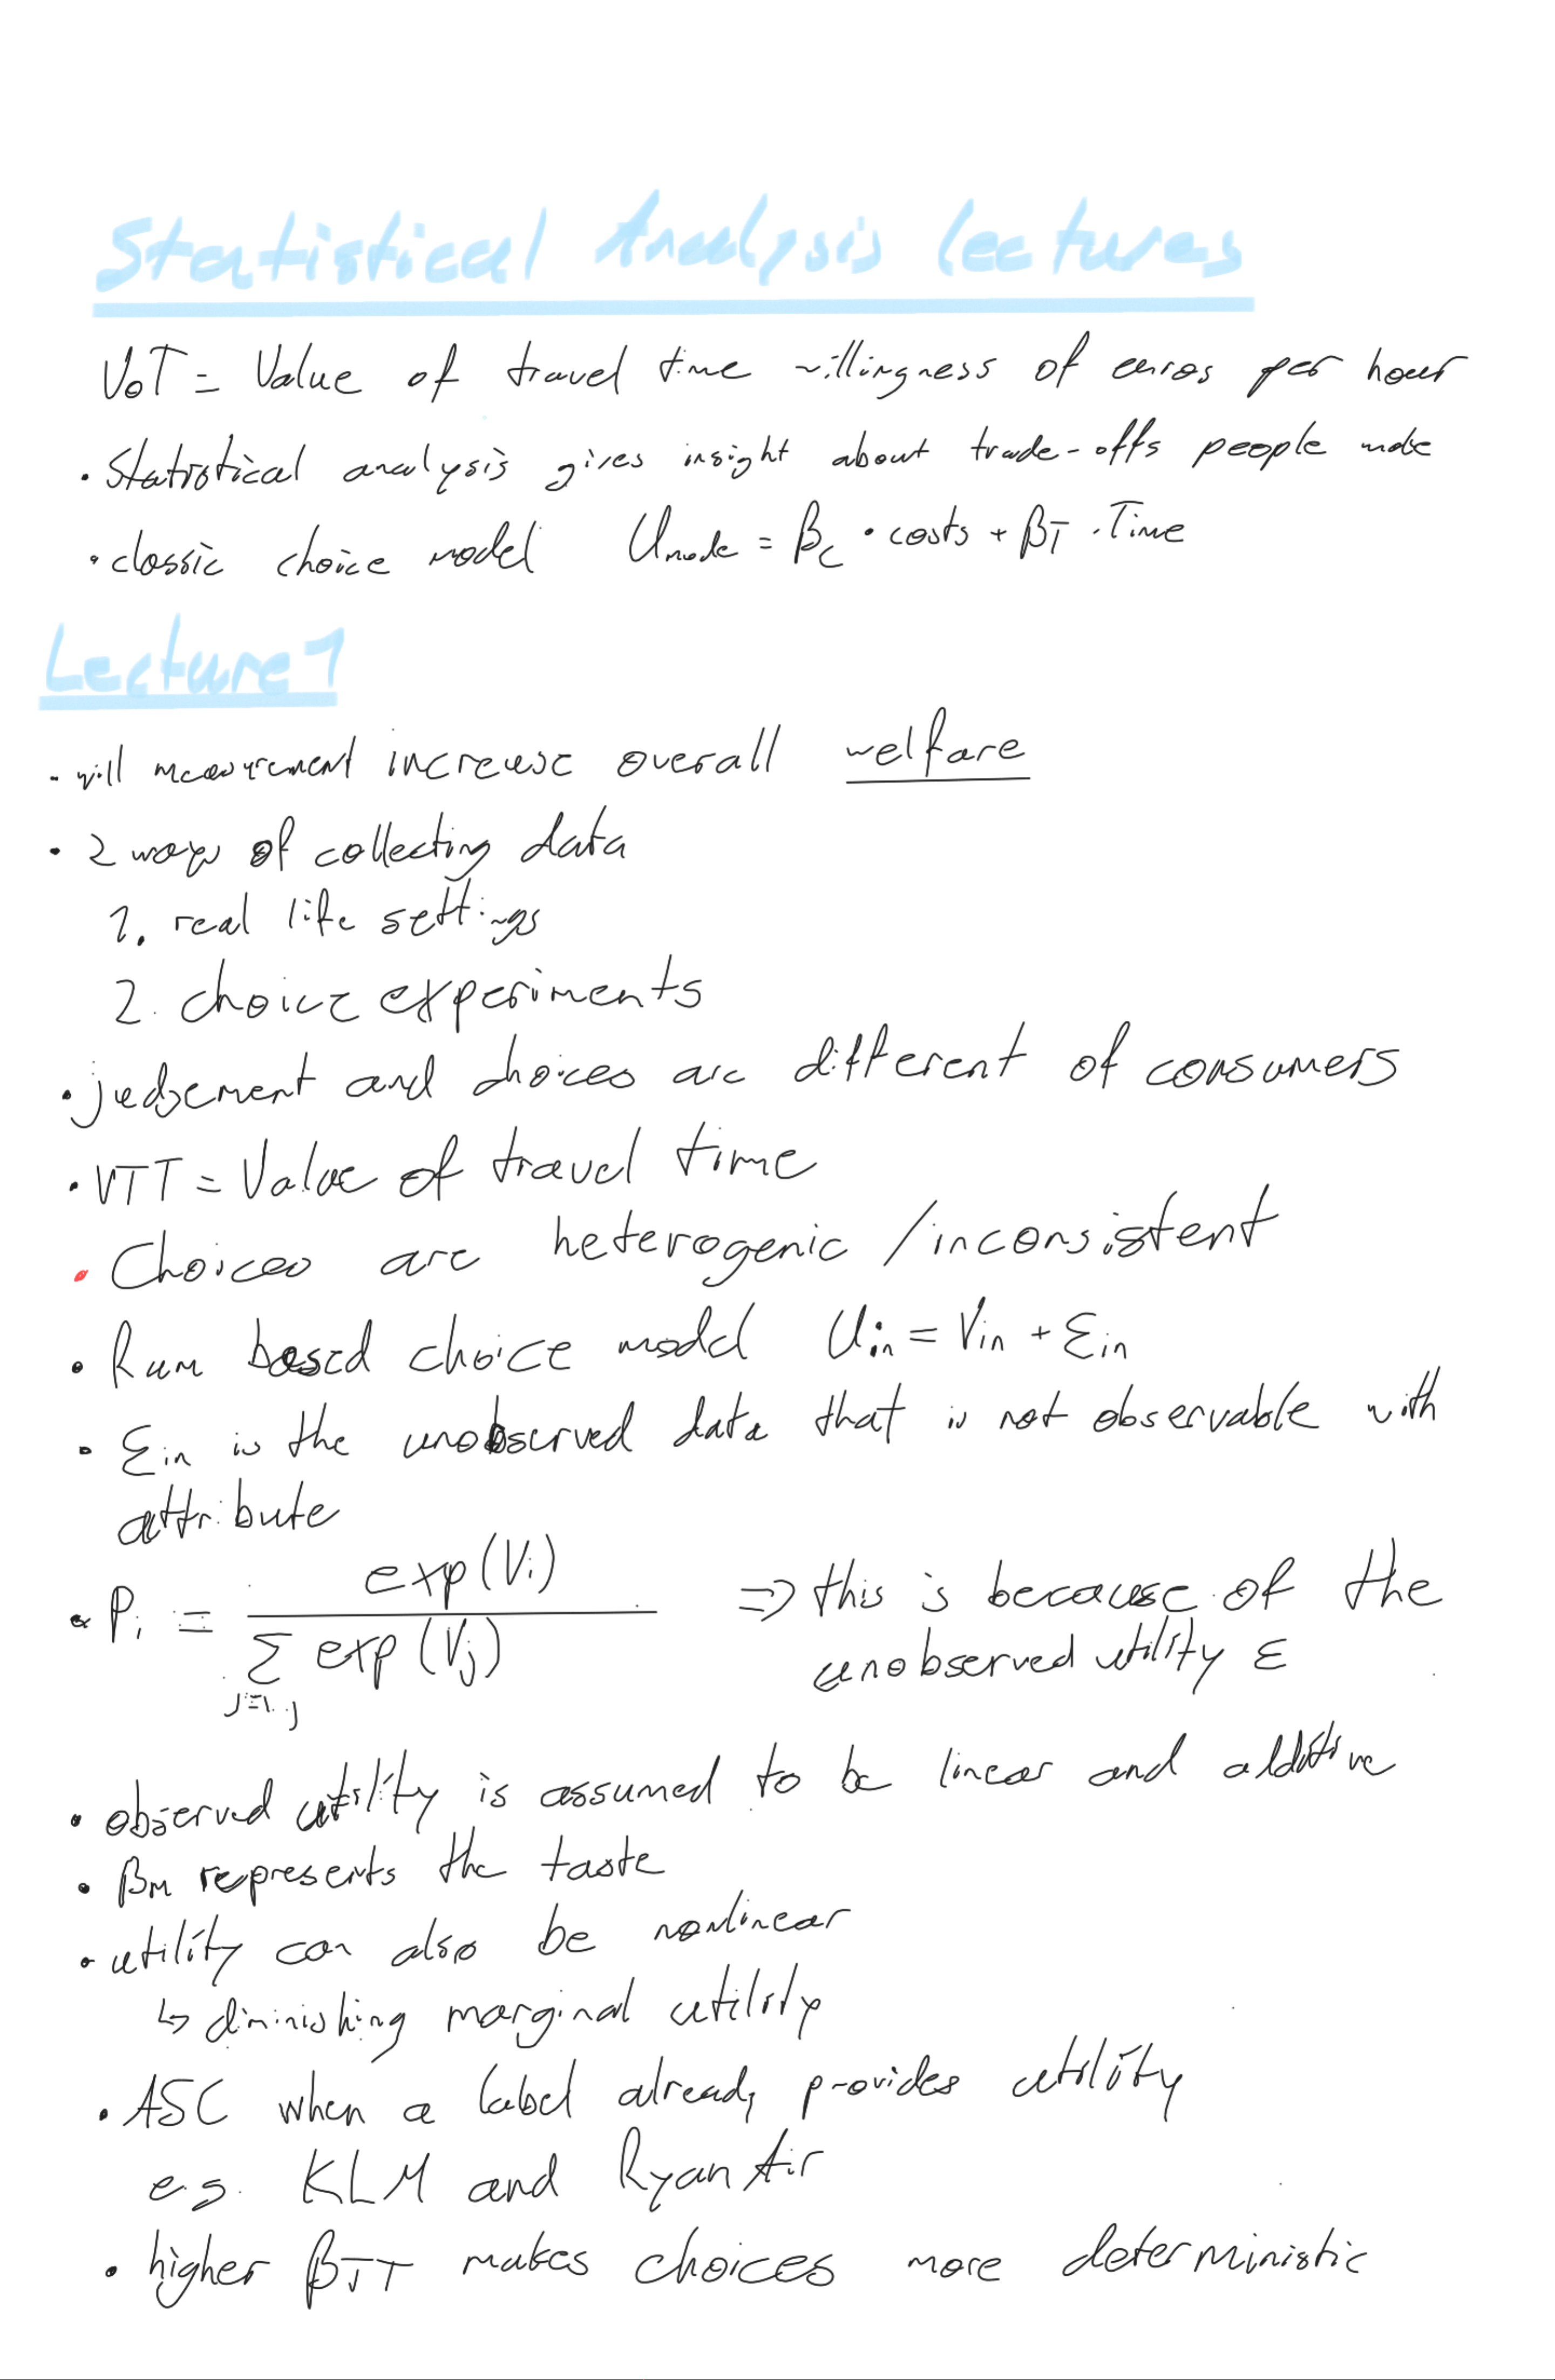 Statistical Analysis lectures
VoT = Value of travel time willingness of euros per hour
• Statistical analysis gives insight about trade-offs people make
• classic choice model U_mode = β_C • costs + β_T • Time
Lecture 1
- will measurement increase overall welfare
• 2 ways of collecting data
1. real life settings
2. choice experiments
• judgement and choices are different of consumers
• VTT = Value of travel time
• Choices are heterogenic / inconsistent
• Rum based choice model U_in = V_in + ε_in
• ε_in is the unobserved data that is not observable with
attribute
• P_i = exp(V_i) / Σ_{j=1..J} exp(V_j) ⇒ this is because of the
unobserved utility ε
• observed utility is assumed to be linear and additive
• β_m represents the taste
• utility can also be nonlinear
↳ diminishing marginal utility
• ASC when a label already provides utility
e.g. KLM and Ryan Air
• higher β_TT makes choices more deterministic